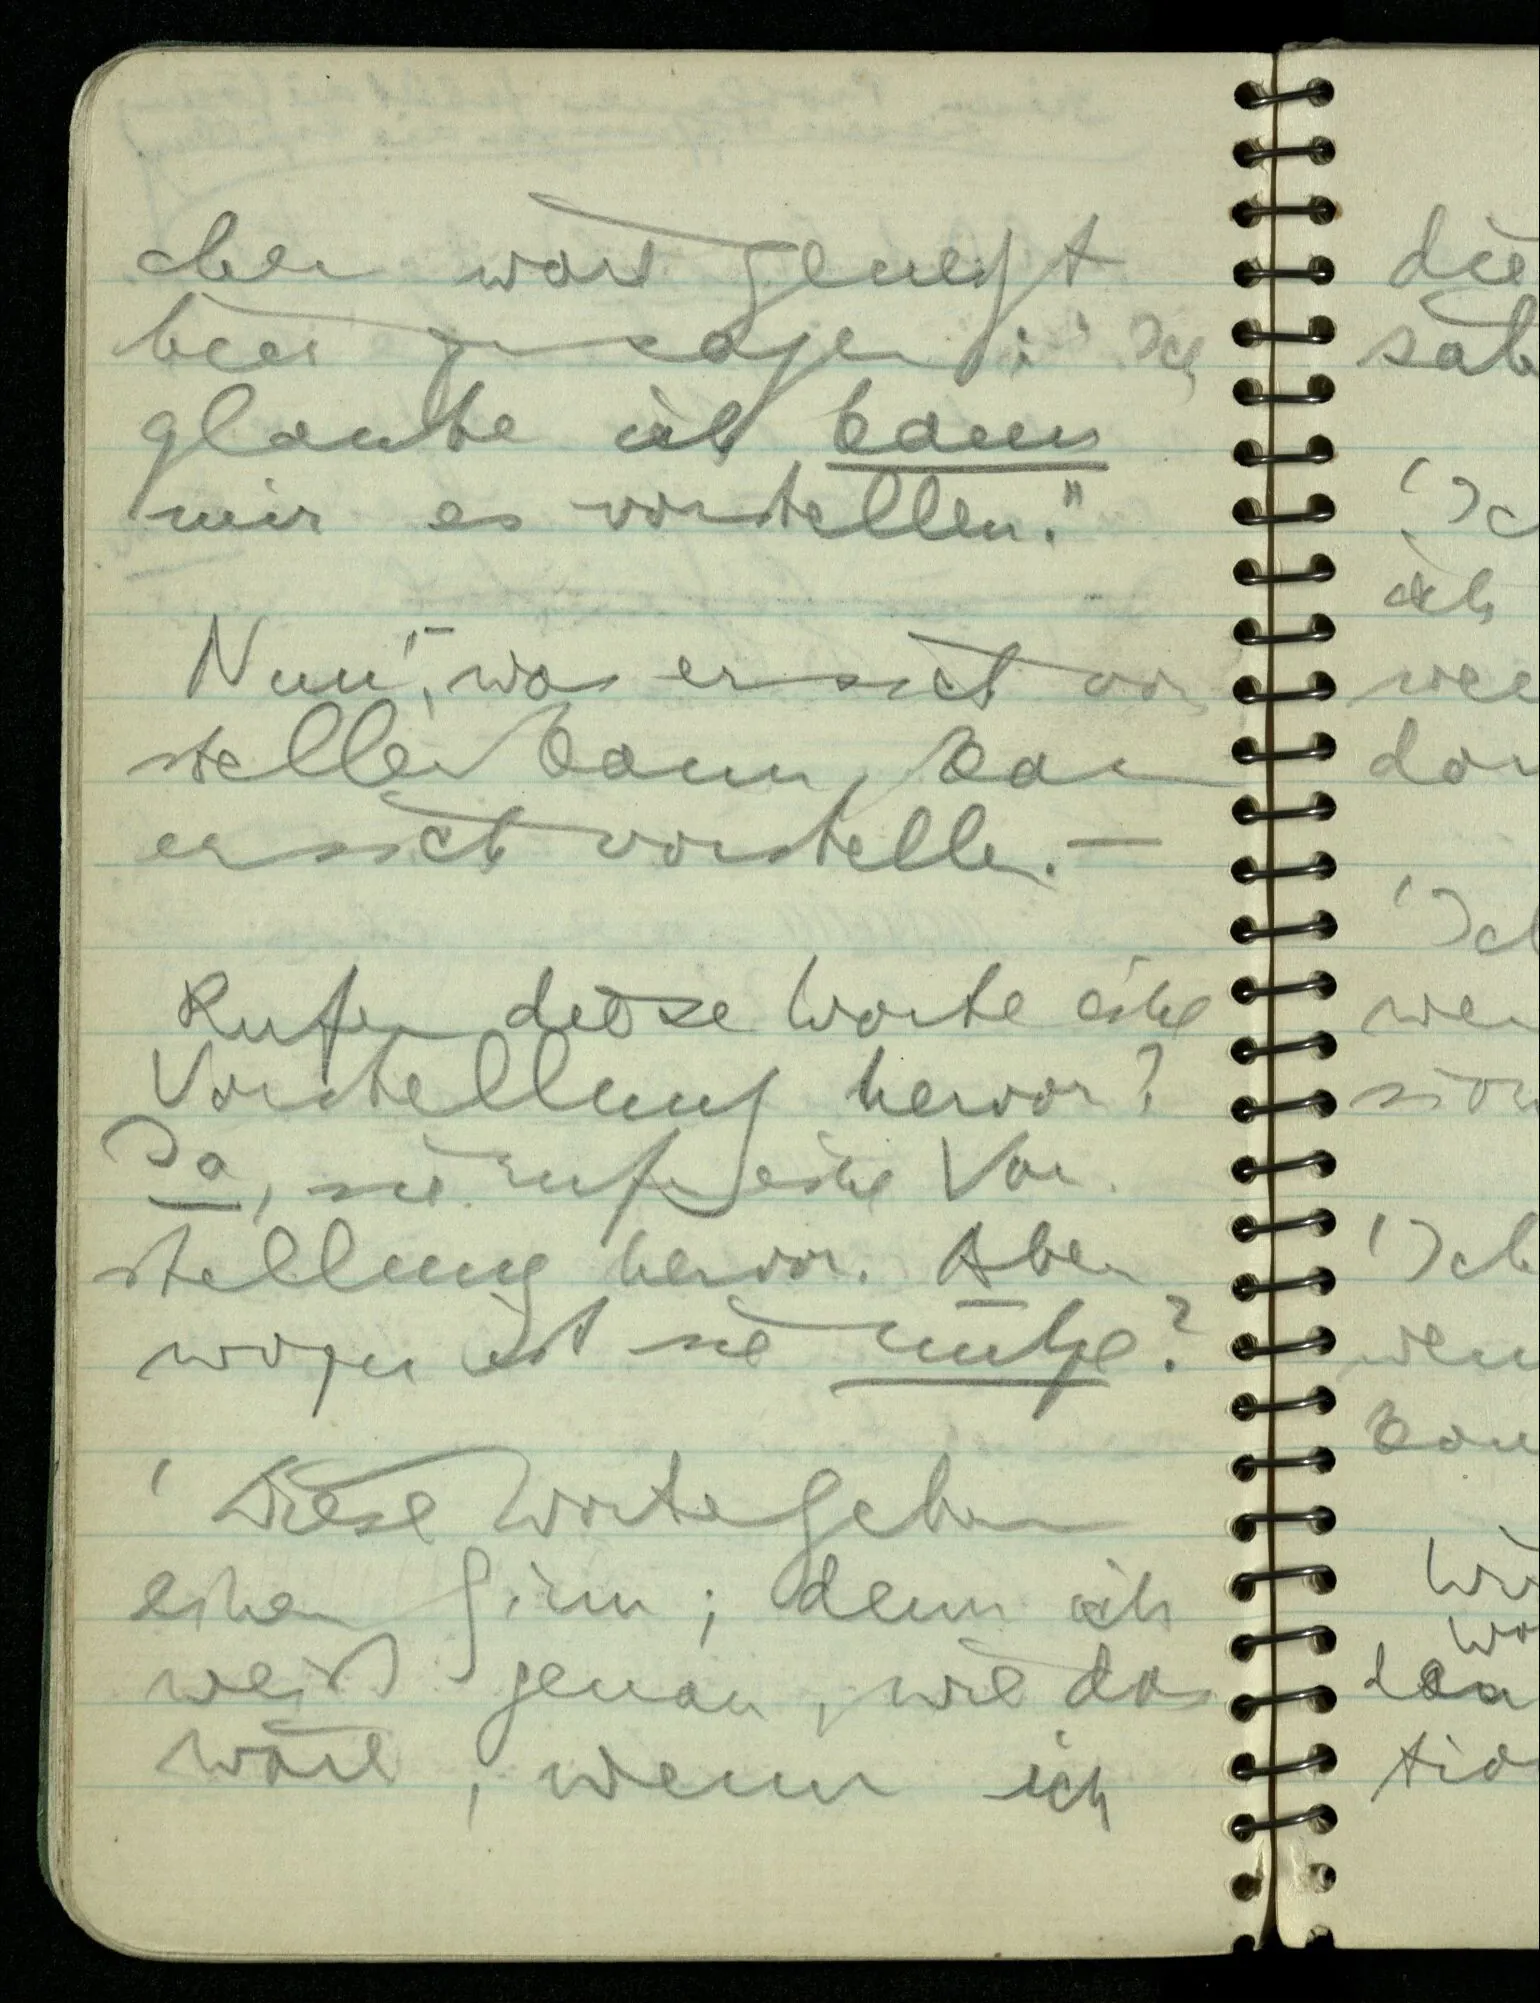 cher wäre geneigt
hier zu sagen: "Ich
glaube ich kann
mir es vorstellen."
Nun, was er sich vor
stellen kann, kann
er sich vorstellen. —
Rufen diese Worte eine
Vorstellung hervor?
Ja, sie rufen eine Vor-
stellung hervor. Aber
wozu ist sie nütze?
' Diese Worte geben
einen Sinn; denn ich
weiß genau, wie das
wäre, wenn ich
die
ich